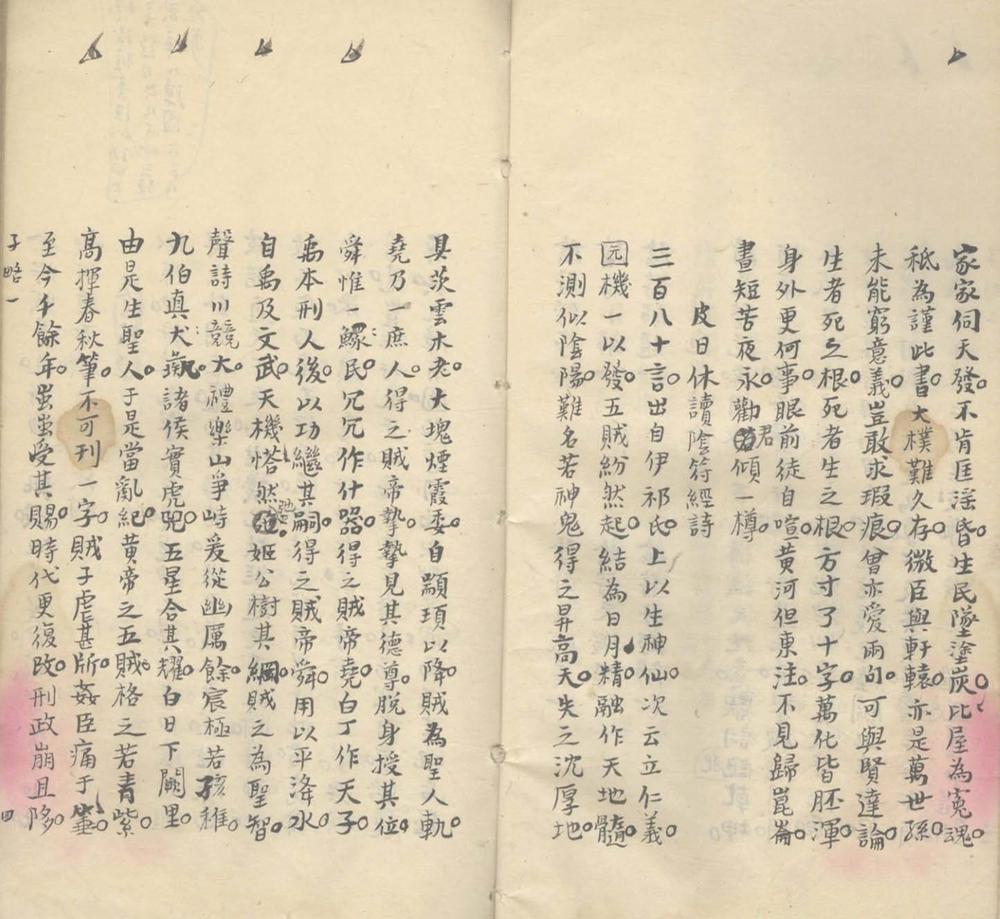 家家伺天發。不肯匡淫昏。生民墜塗炭。比屋為冤魂。
祇為謹此書。大樸難久存。微臣與軒轅。亦是萬世孫。
未能窮意義。豈敢求瑕痕。曾亦愛兩句。可與賢達論。
生者死之根。死者生之根。方寸了十字。萬化皆胚渾。
身外更何事。眼前徒自喧。黃河但東注。不見歸崑崙。
晝短苦夜永。勸君傾一樽。
皮日休讀陰符經詩
三百八十言。出自伊祁氏。上以生神仙。次云立仁義。
囩機一以發。五賊紛然起。結為日月精。融作天地髓。
不測似陰陽。難名若神鬼。得之昇高天。失之沈厚地。
具茨雲木老。大塊煙霞委。自顓頊以降。賊為聖人軌。
堯乃一庶人。得之賊帝摯。摯見其德尊。脫身授其位。
舜惟一鰥民。冗冗作什器。得之賊帝堯。白丁作天子。
禹本刑人後。以功繼其嗣。得之賊帝舜。用以平洚水。
自禹及文武。天機悟然弛。姬公樹其綱。賊之為聖智。
聲詩川競大。禮樂山爭峙。爰從幽厲餘。宸極若孩稚。
九伯真犬彘。諸侯實虎兕。五星合其耀。白日下闕里。
由是生聖人。于是當亂紀。黃帝之五賊。格之若青紫。
高揮春秋筆。不可刊一字。賊子虐甚斨。姦臣痛于箠。
至今千餘年。蚩蚩受其賜。時代更復改。刑政崩且陊。
子略一
四